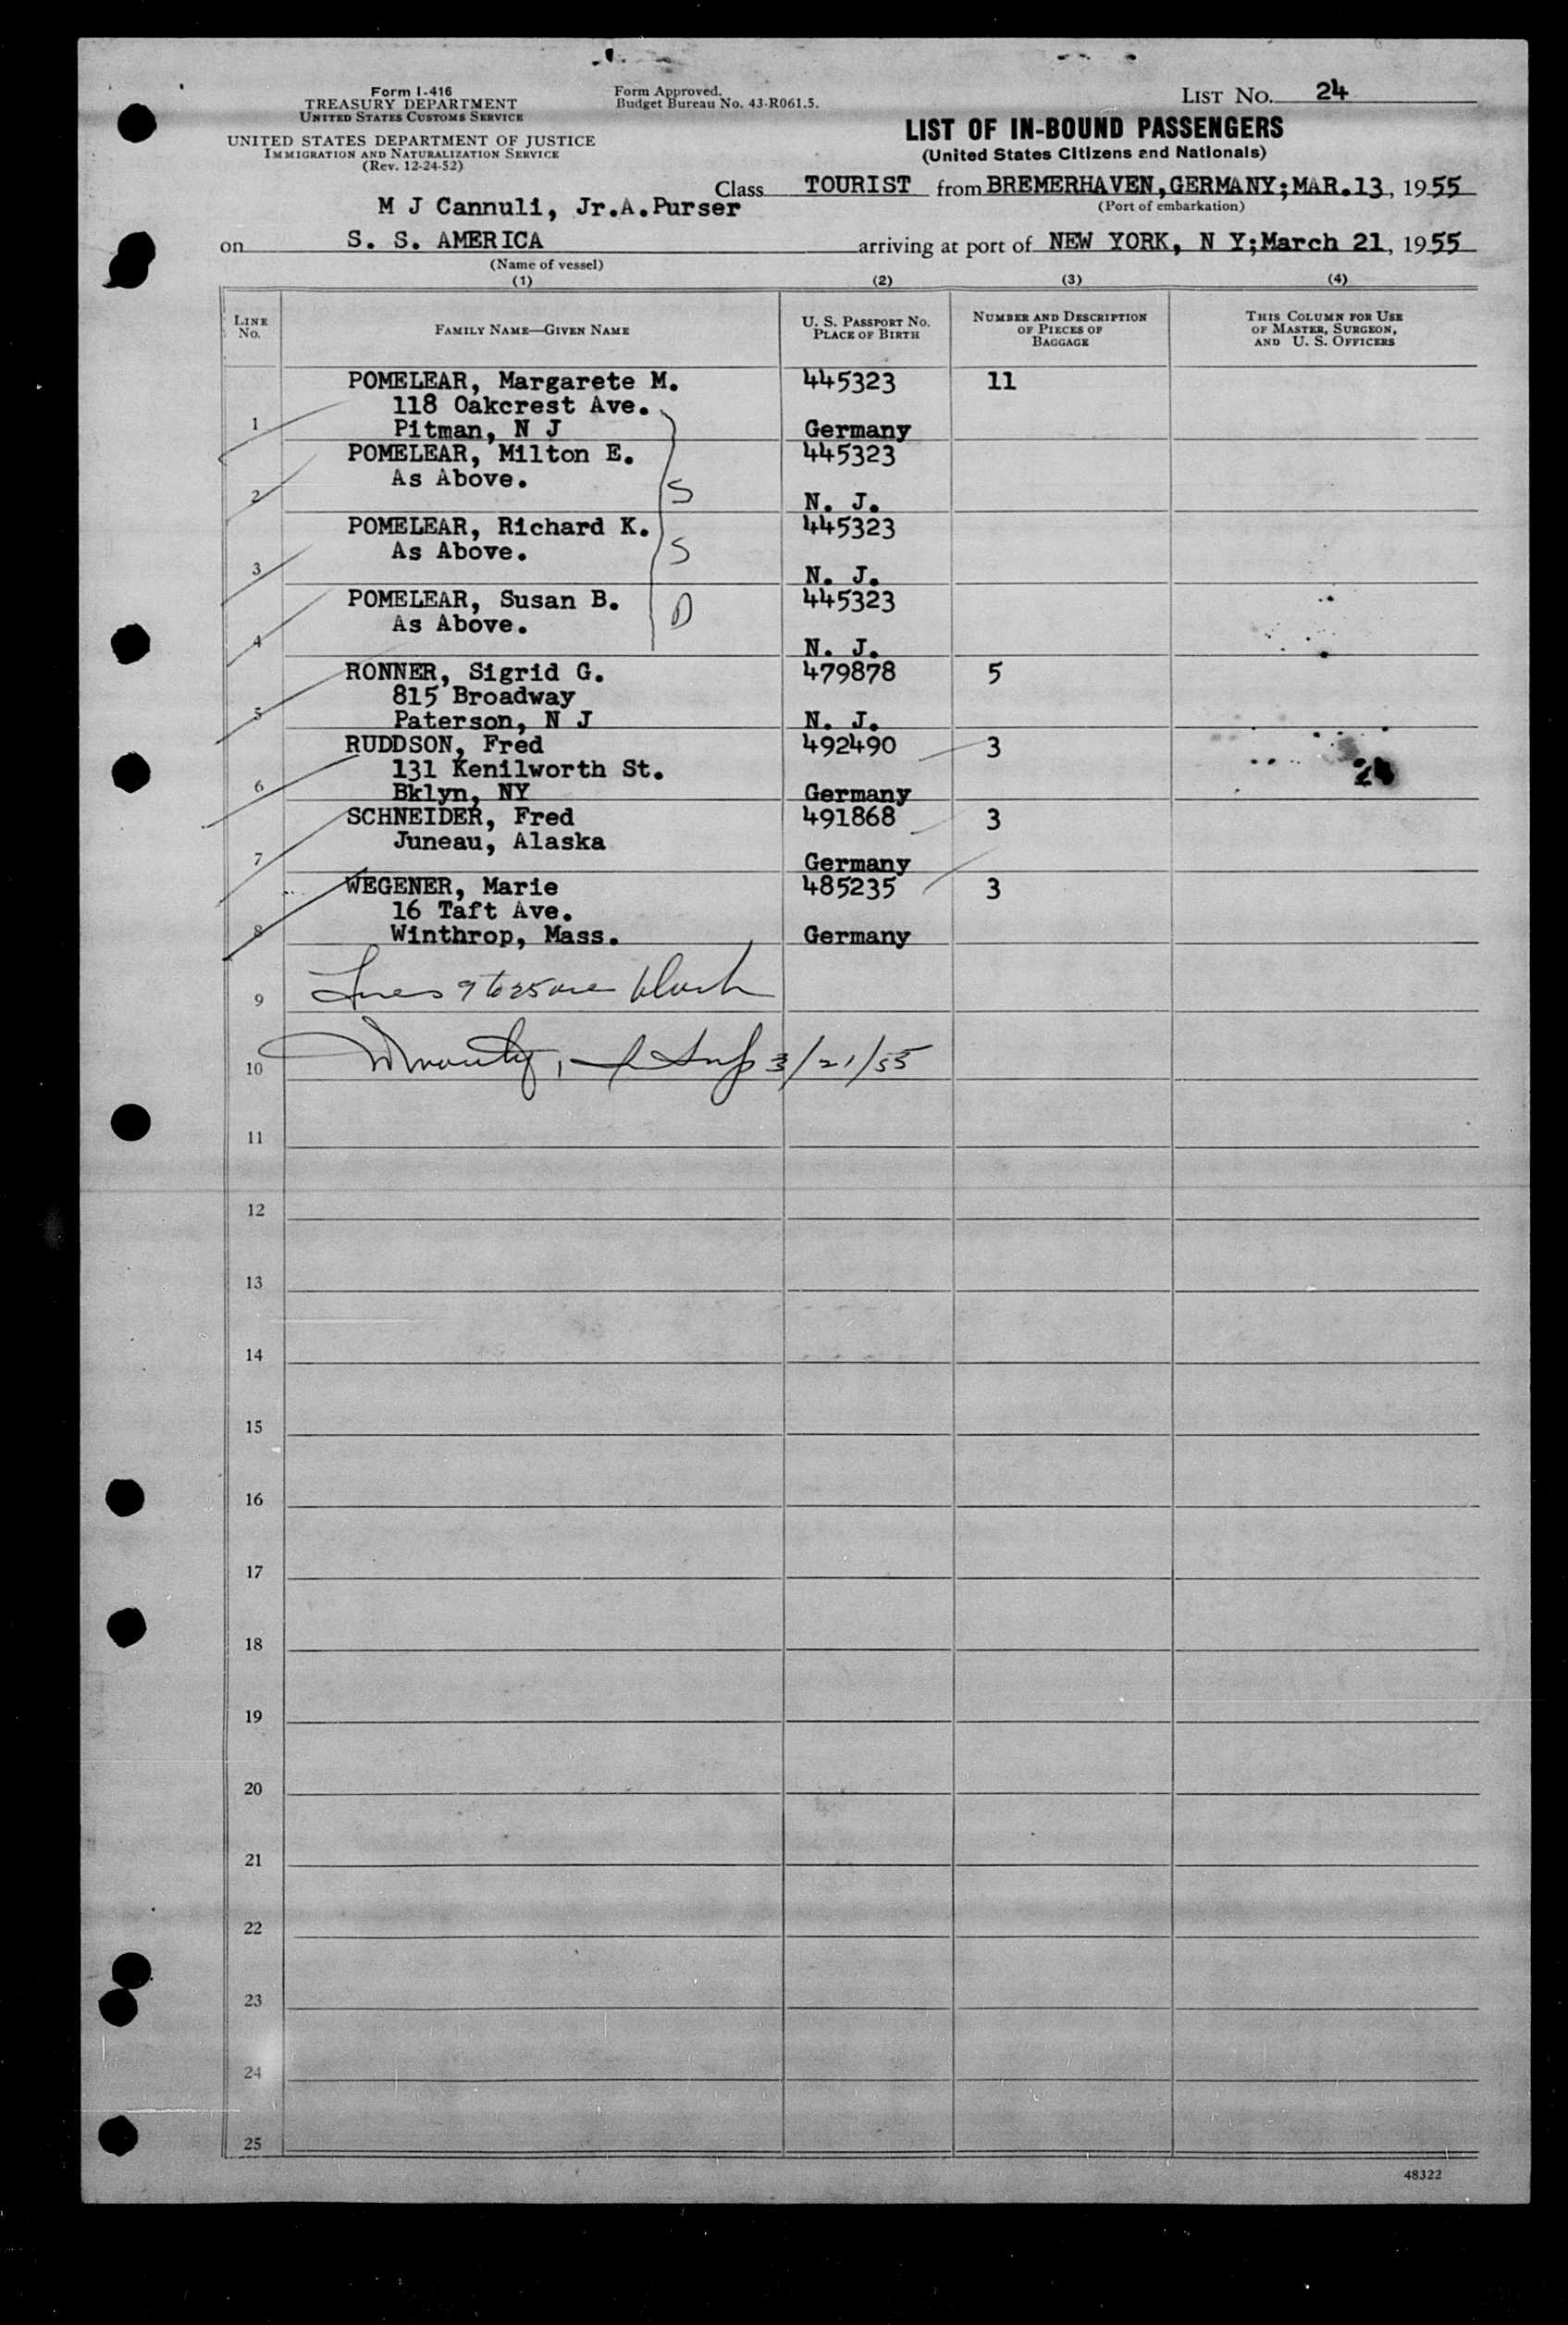 Form I-416
TREASURY DEPARTMENT
UNITED STATES CUSTOMS SERVICE
UNITED STATES DEPARTMENT OF JUSTICE
IMMIGRATION AND NATURALIZATION SERVICE
(Rev. 12-24-52)
Form Approved.
Budget Bureau No. 43-R061.5.
LIST NO. 24
LIST OF IN-BOUND PASSENGERS
(United States Citizens and Nationals)
Class TOURIST from BREMERHAVEN,GERMANY;MAR.13, 1955
(Port of embarkation)
M J Cannuli, Jr.A.Purser
on S. S. AMERICA arriving at port of NEW YORK, N Y;March 21, 1955
(Name of vessel)
(1) (2) (3) (4)
LINE NO. FAMILY NAME—GIVEN NAME U. S. PASSPORT NO. PLACE OF BIRTH NUMBER AND DESCRIPTION OF PIECES OF BAGGAGE THIS COLUMN FOR USE OF MASTER, SURGEON, AND U. S. OFFICERS
POMELEAR, Margarete M. 445323 11
118 Oakcrest Ave.
1 Pitman, N J Germany
POMELEAR, Milton E. 445323
As Above. S
2 N. J.
POMELEAR, Richard K. 445323
As Above. S
3 N. J.
POMELEAR, Susan B. 445323
As Above. D
4 N. J.
RONNER, Sigrid G. 479878 5
815 Broadway
5 Paterson, N J N. J.
RUDDSON, Fred 492490 3
131 Kenilworth St.
6 Bklyn, NY Germany
SCHNEIDER, Fred 491868 3
Juneau, Alaska
7 Germany
WEGENER, Marie 485235 3
16 Taft Ave.
8 Winthrop, Mass. Germany
9 Lines 9 to 25 are blank
10 3/21/55
11
12
13
14
15
16
17
18
19
20
21
22
23
24
25
48322